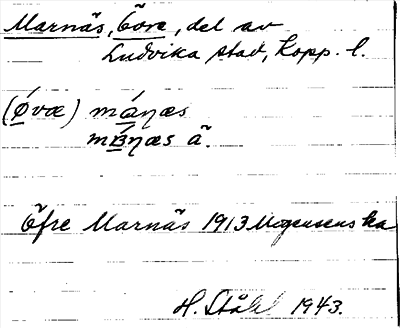 Marnäs, Övre, del av
Ludvika stad, Kopp. l.
(øvœ) máŋæs
máŋæs ā.
Öfre Marnäs 1913 Mogensenska
H. Ståhl 1943.